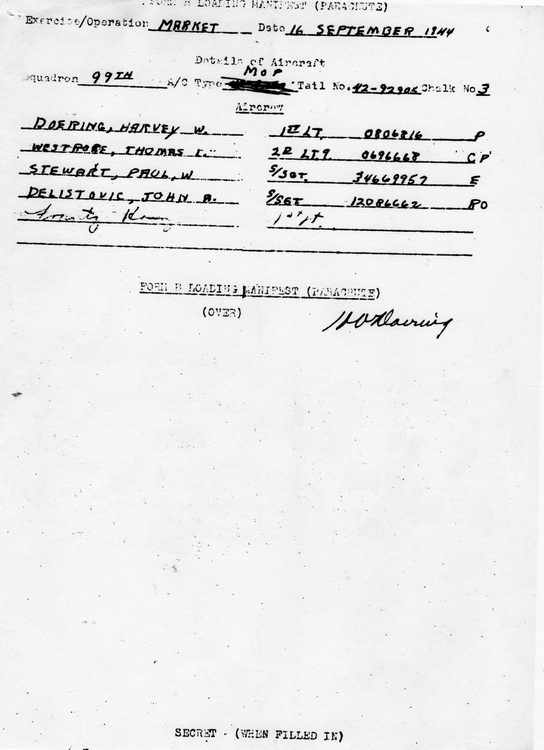 FORM B LOADING MANIFEST (PARACHUTE)
Exercise/Operation MARKET Date 16 SEPTEMBER 1944
Details of Aircraft
MOP
Squadron 99TH A/C Type Tail No. 42-92906 Chalk No 3
Aircrew
DOERING, HARVEY W. 1ST LT. 0806816 P
WESTROPE, THOMAS I. 2D LT. 0696668 CP
STEWART, PAUL, W S/SGT. 34669957 E
DELISTOVIC, JOHN A. S/SGT 12086662 RO
1st Lt.
FORM B LOADING MANIFEST (PARACHUTE)
(OVER)
SECRET - (WHEN FILLED IN)